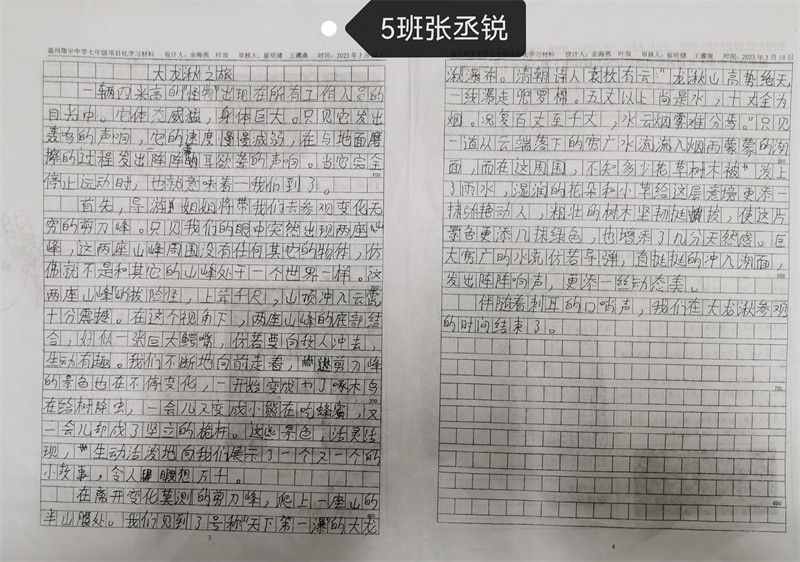 5班张丞锐
温州翔宇中学七年级项目化学习材料 设计人：余海燕 叶双 审核人：崔明健 王灩南 时间：2023年3月18日
大龙湫之旅
一辆四米高的"怪物"出现在所有工作人员的
目光中。它体态威猛，身体巨大。只见它发出
轰鸣的声响，它的速度慢慢成弱，在与地面磨
擦的过程发出阵阵震耳欲聋的声响。当它完全
停止运动时，也就意味着—我们到了。
首先，导游姐姐将带我们去参观变化无
穷的剪刀峰。只见我们的眼中突然出现两座山
峰，这两座山峰周围没有任何其它的物体，仿
偶就不是和其它的山峰处于一个世界一样。这
两座山峰峭拔险怪，上耸千尺，山顶冲入云霄，
十分震撼。在这个视角下，两座山峰的底部结
合，好似一张巨大鳄嘴，仿若要向敌人冲去，
生动有趣。我们不断地向前走着，剪刀峰
的景色也在不停变化，一开始变成了啄木鸟
在给树除虫，一会儿又变成小熊在吃蜂蜜，又
一会儿却成了坚立的桅杆。这些景色，活灵活
现，生动活泼地向我们展示了一个又一个的
小故事，令人暇想万千。
在离开变化莫测的剪刀峰，爬上一座山的
半山腰处。我们见到了号称"天下第一瀑"的大龙
3
温州翔宇中学七年级项目化学习材料 设计人：余海燕 叶双 审核人：崔明健 王灩南 时间：2023年3月18日
湫瀑布。清朝诗人袁枚有云："龙湫山高势绝天，
一线瀑走兜罗棉。五丈以上尚是水，十丈全为
烟。况复百丈至千丈，水云烟雾难分焉。"只见
一道从云端落下的宽广水流流入烟雨蒙蒙的湖
面，而在这周围，不知多少花草树木被泼上
了雨水，湿润的花朵和小草给这层意境更添一
抹流艳动人，粗壮的树木坚韧挺拔，使这片
景色更添几抹绿色，也增添了几分天然感。巨
大宽广的水流仿若导弹，直挺挺的冲入湖面，
发出阵阵响声，更添一丝动态美。
伴随着刺耳的口哨声，我们在大龙湫参观
的时间结束了。
4